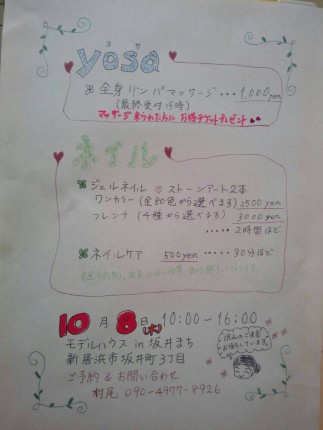 ヨサ
yosa
全身リンパマッサージ・・・1,000yen
(最終受付15時)
マッサージ来られた方に お得チケットプレゼント
ネイル
ジェルネイル ♡ ストーンアート2本
ワンカラー(全30色から選べます) 2500yen
フレンチ(4種から選べます) 3000yen
・・・・・2時間ほど
ネイルケア 500yen ・・・・・30分ほど
10月8日(水) 10:00~16:00
モデルハウス in 坂井まち
新居浜市坂井町3丁目
ご予約&お問い合わせ
村尾 090-4977-8926
沢山のご来店
お待ちしています。